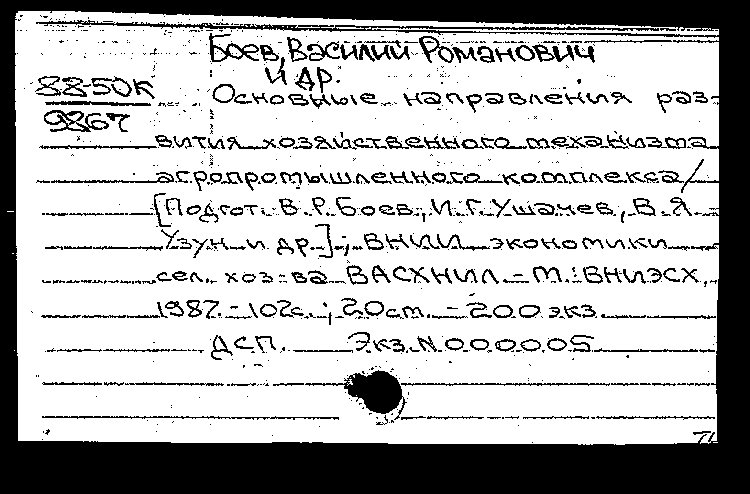 Боев, Василий Романович
и др.
88-50К
9867
Основные направления раз-
вития хозяйственного механизма
агропромышленного комплекса/
[Подгот. В.Р. Боев, И.Г. Ушачев, В.Я.
Узун и др.]; ВНИИ экономики
сел. хоз-ва ВАСХНИЛ. - М.: ВНИЭСХ,
1987. - 102с.; 20см. - 200экз.
ДСП. Экз. N 000005